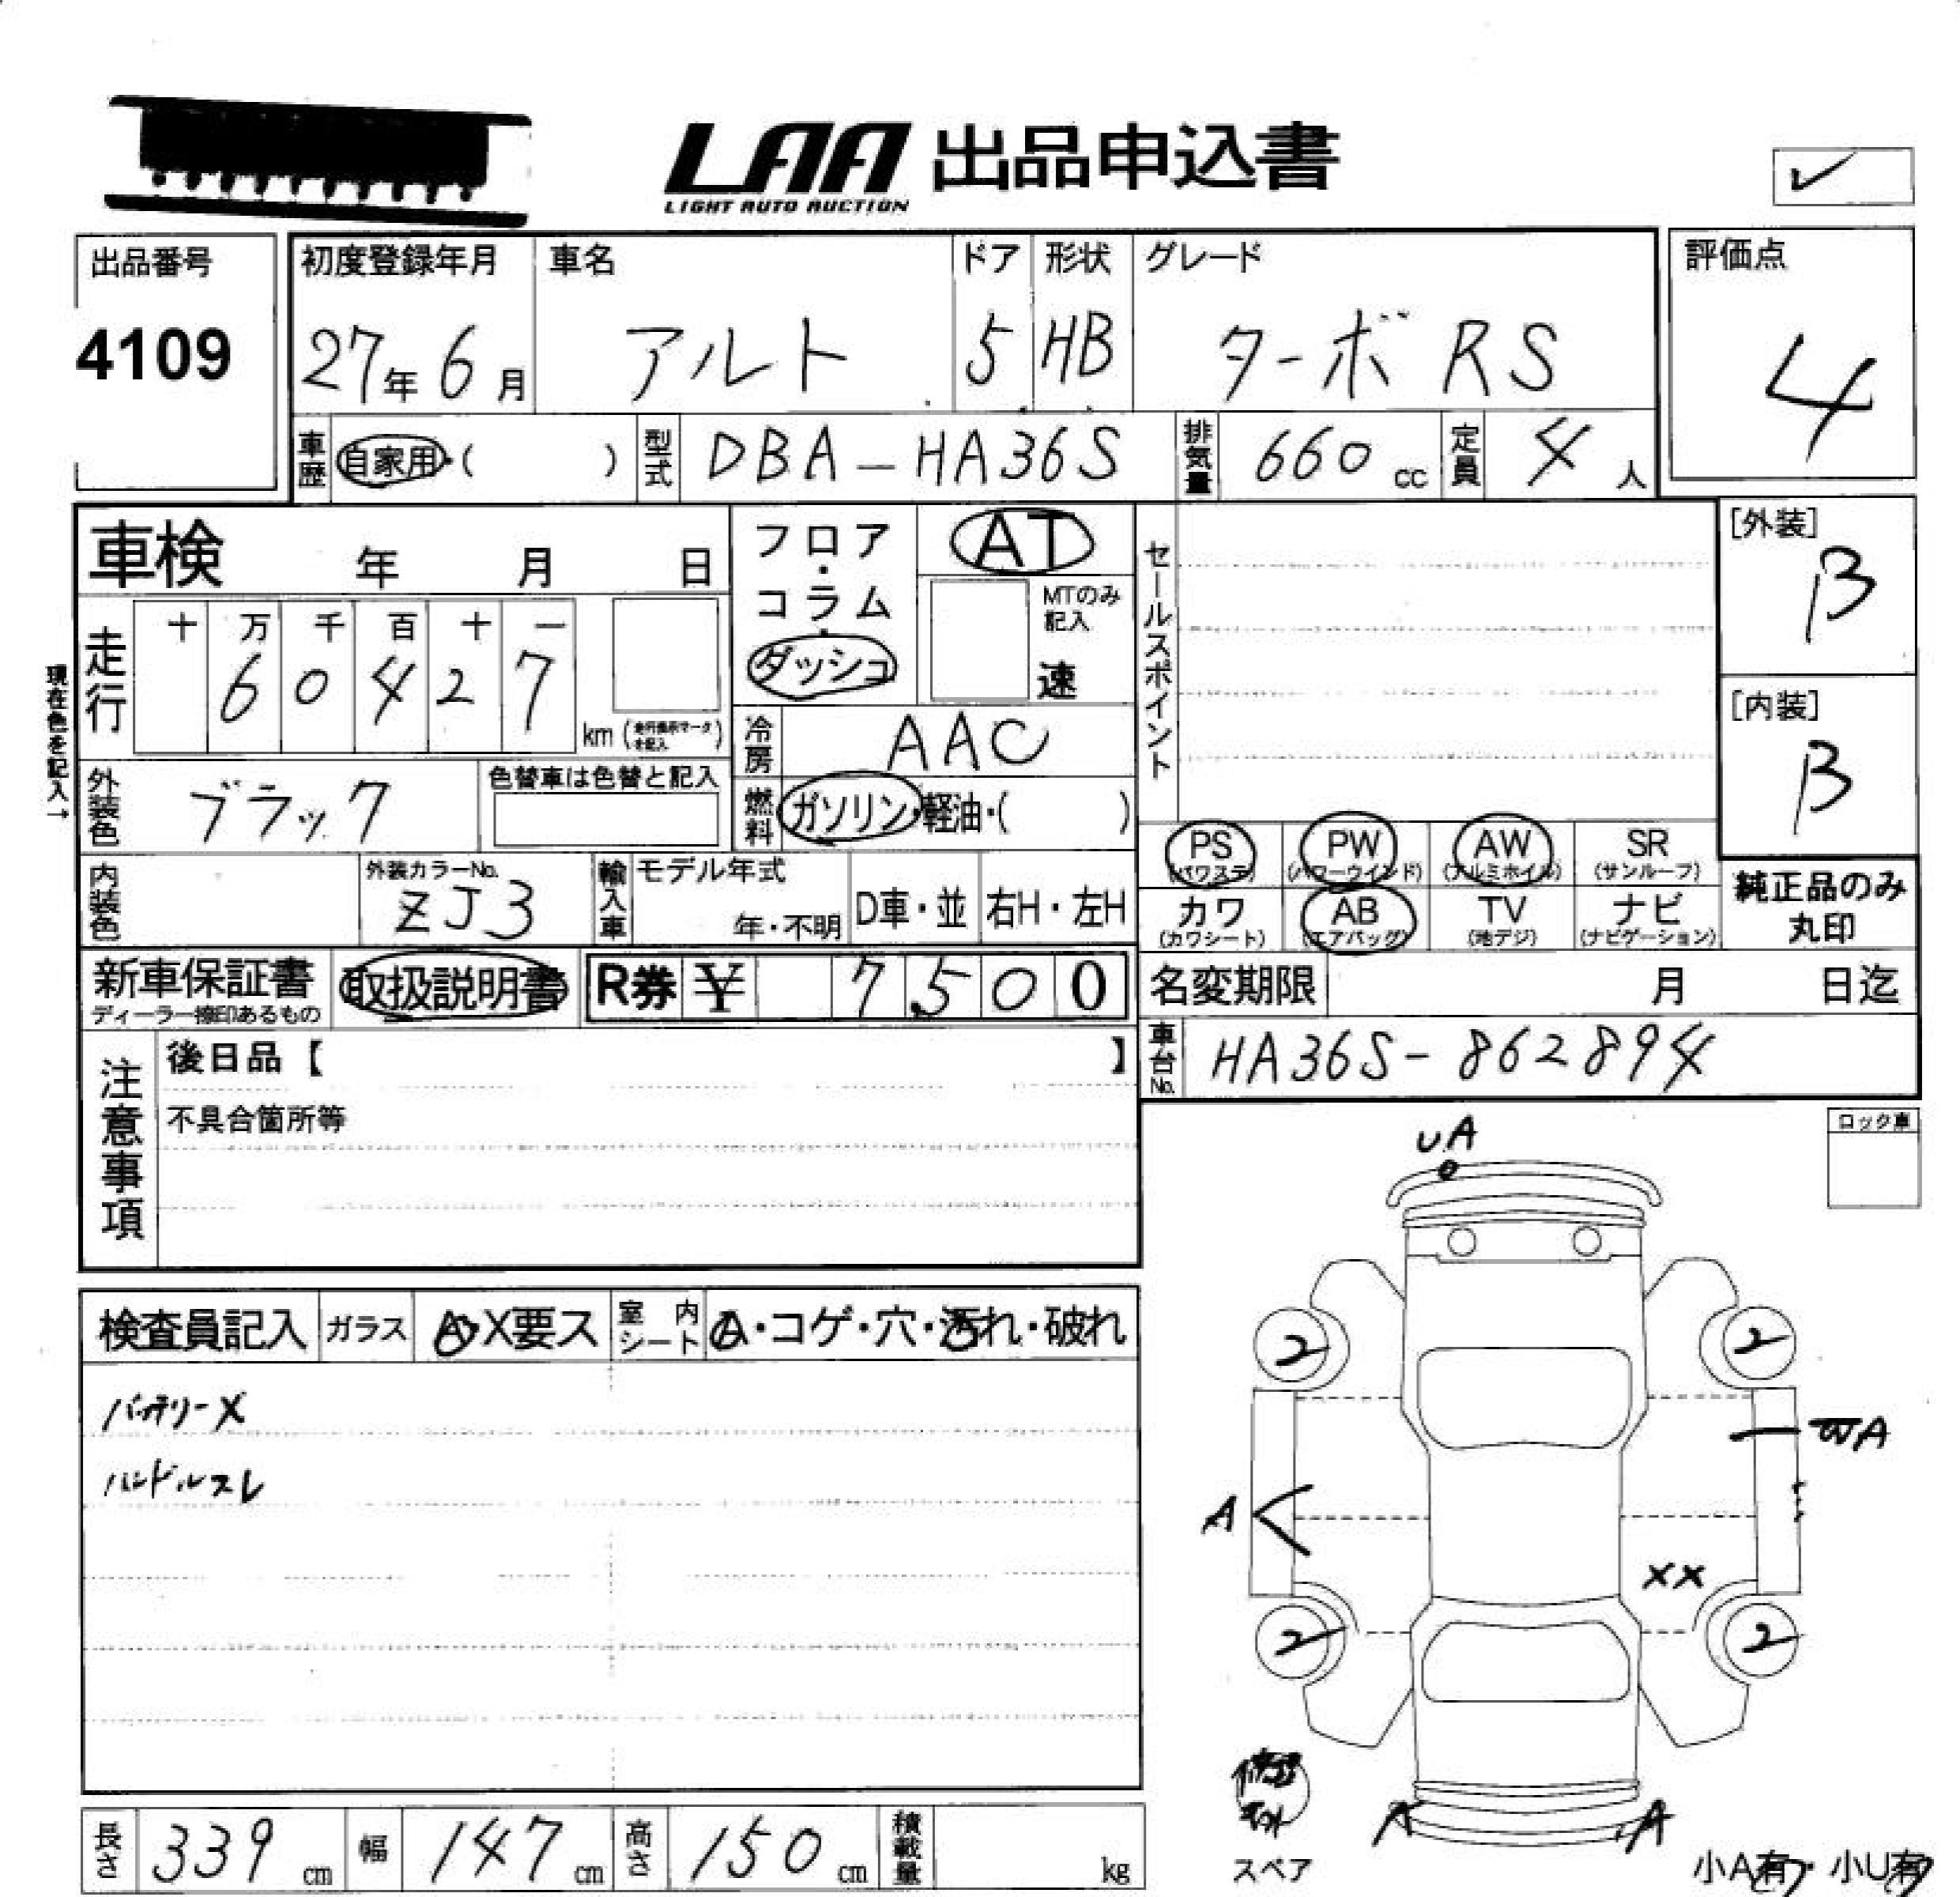 LAA 出品申込書
LIGHT AUTO AUCTION
出品番号
4109
初度登録年月 車名 ドア 形状 グレード
27年6月 アルト 5 HB ターボ RS
評価点
4
車歴 自家用・( ) 型式 DBA-HA36S 排気量 660 cc 定員 4 人
車検 年 月 日
フロア・コラム・ダッシュ
AT
MTのみ記入
速
セールスポイント
[外装]
B
[内装]
B
現在色を記入→
走行 十 万 千 百 十 一
6 0 4 2 7
km
冷房 AAC
外装色 ブラック 色替車は色替と記入
燃料 ガソリン・軽油・( )
PS (パワステ) PW (パワーウインド) AW (アルミホイル) SR (サンルーフ)
カワ (カワシート) AB (エアバッグ) TV (地デジ) ナビ (ナビゲーション)
純正品のみ
丸印
内装色 外装カラーNo. ZJ3 輸入車 モデル年式 年・不明 D車・並 右H・左H
新車保証書 取扱説明書 R券 ¥ 7500
ディーラー捺印あるもの
名変期限 月 日迄
車台No. HA36S-862894
注意事項
後日品【 】
不具合箇所等
ロック車
UA
検査員記入 ガラス A・X要ス 室内シート A・コゲ・穴・汚れ・破れ
バッテリーX
ハンドルスレ
2 2
WA
A
XX
2 2
A A
スペア
小A有・小U有
長さ 339 cm 幅 147 cm 高さ 150 cm 積載量 kg